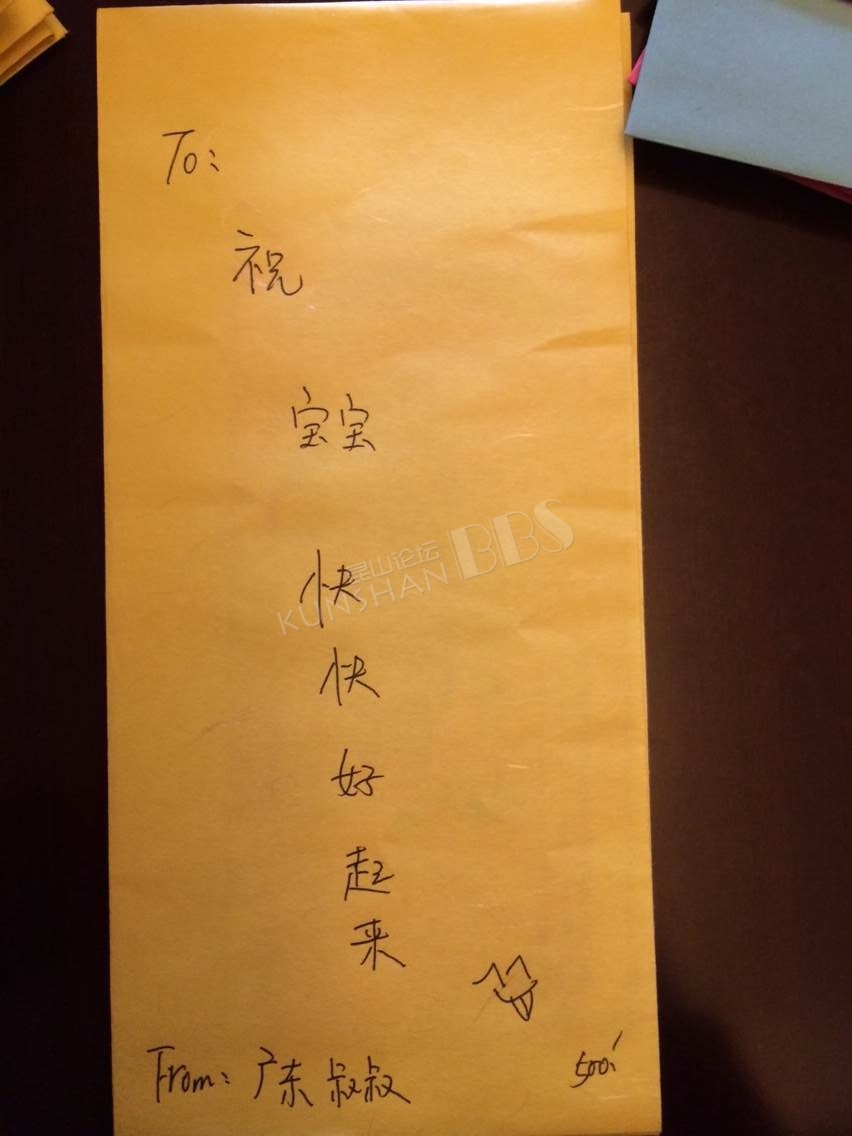 To:
祝
宝宝
快
快
好
起
来
From: 广东叔叔
500
昆山论坛
KUNSHAN BBS